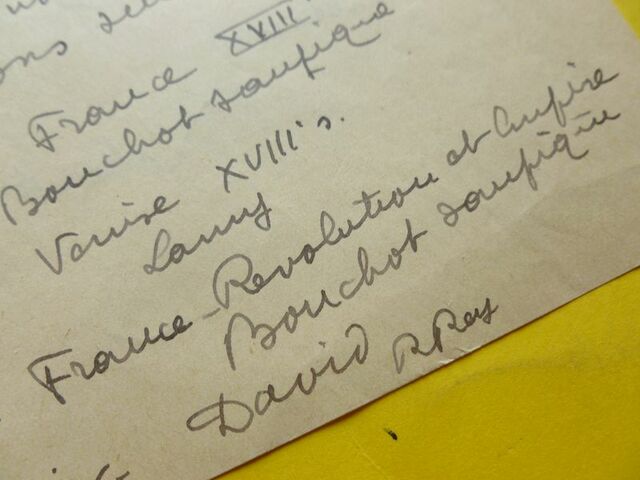 ons
France XVIII
Bouchot
Venise XVIII s.
Lamy
France - Revolution et Empire
Bouchot
David R Rey